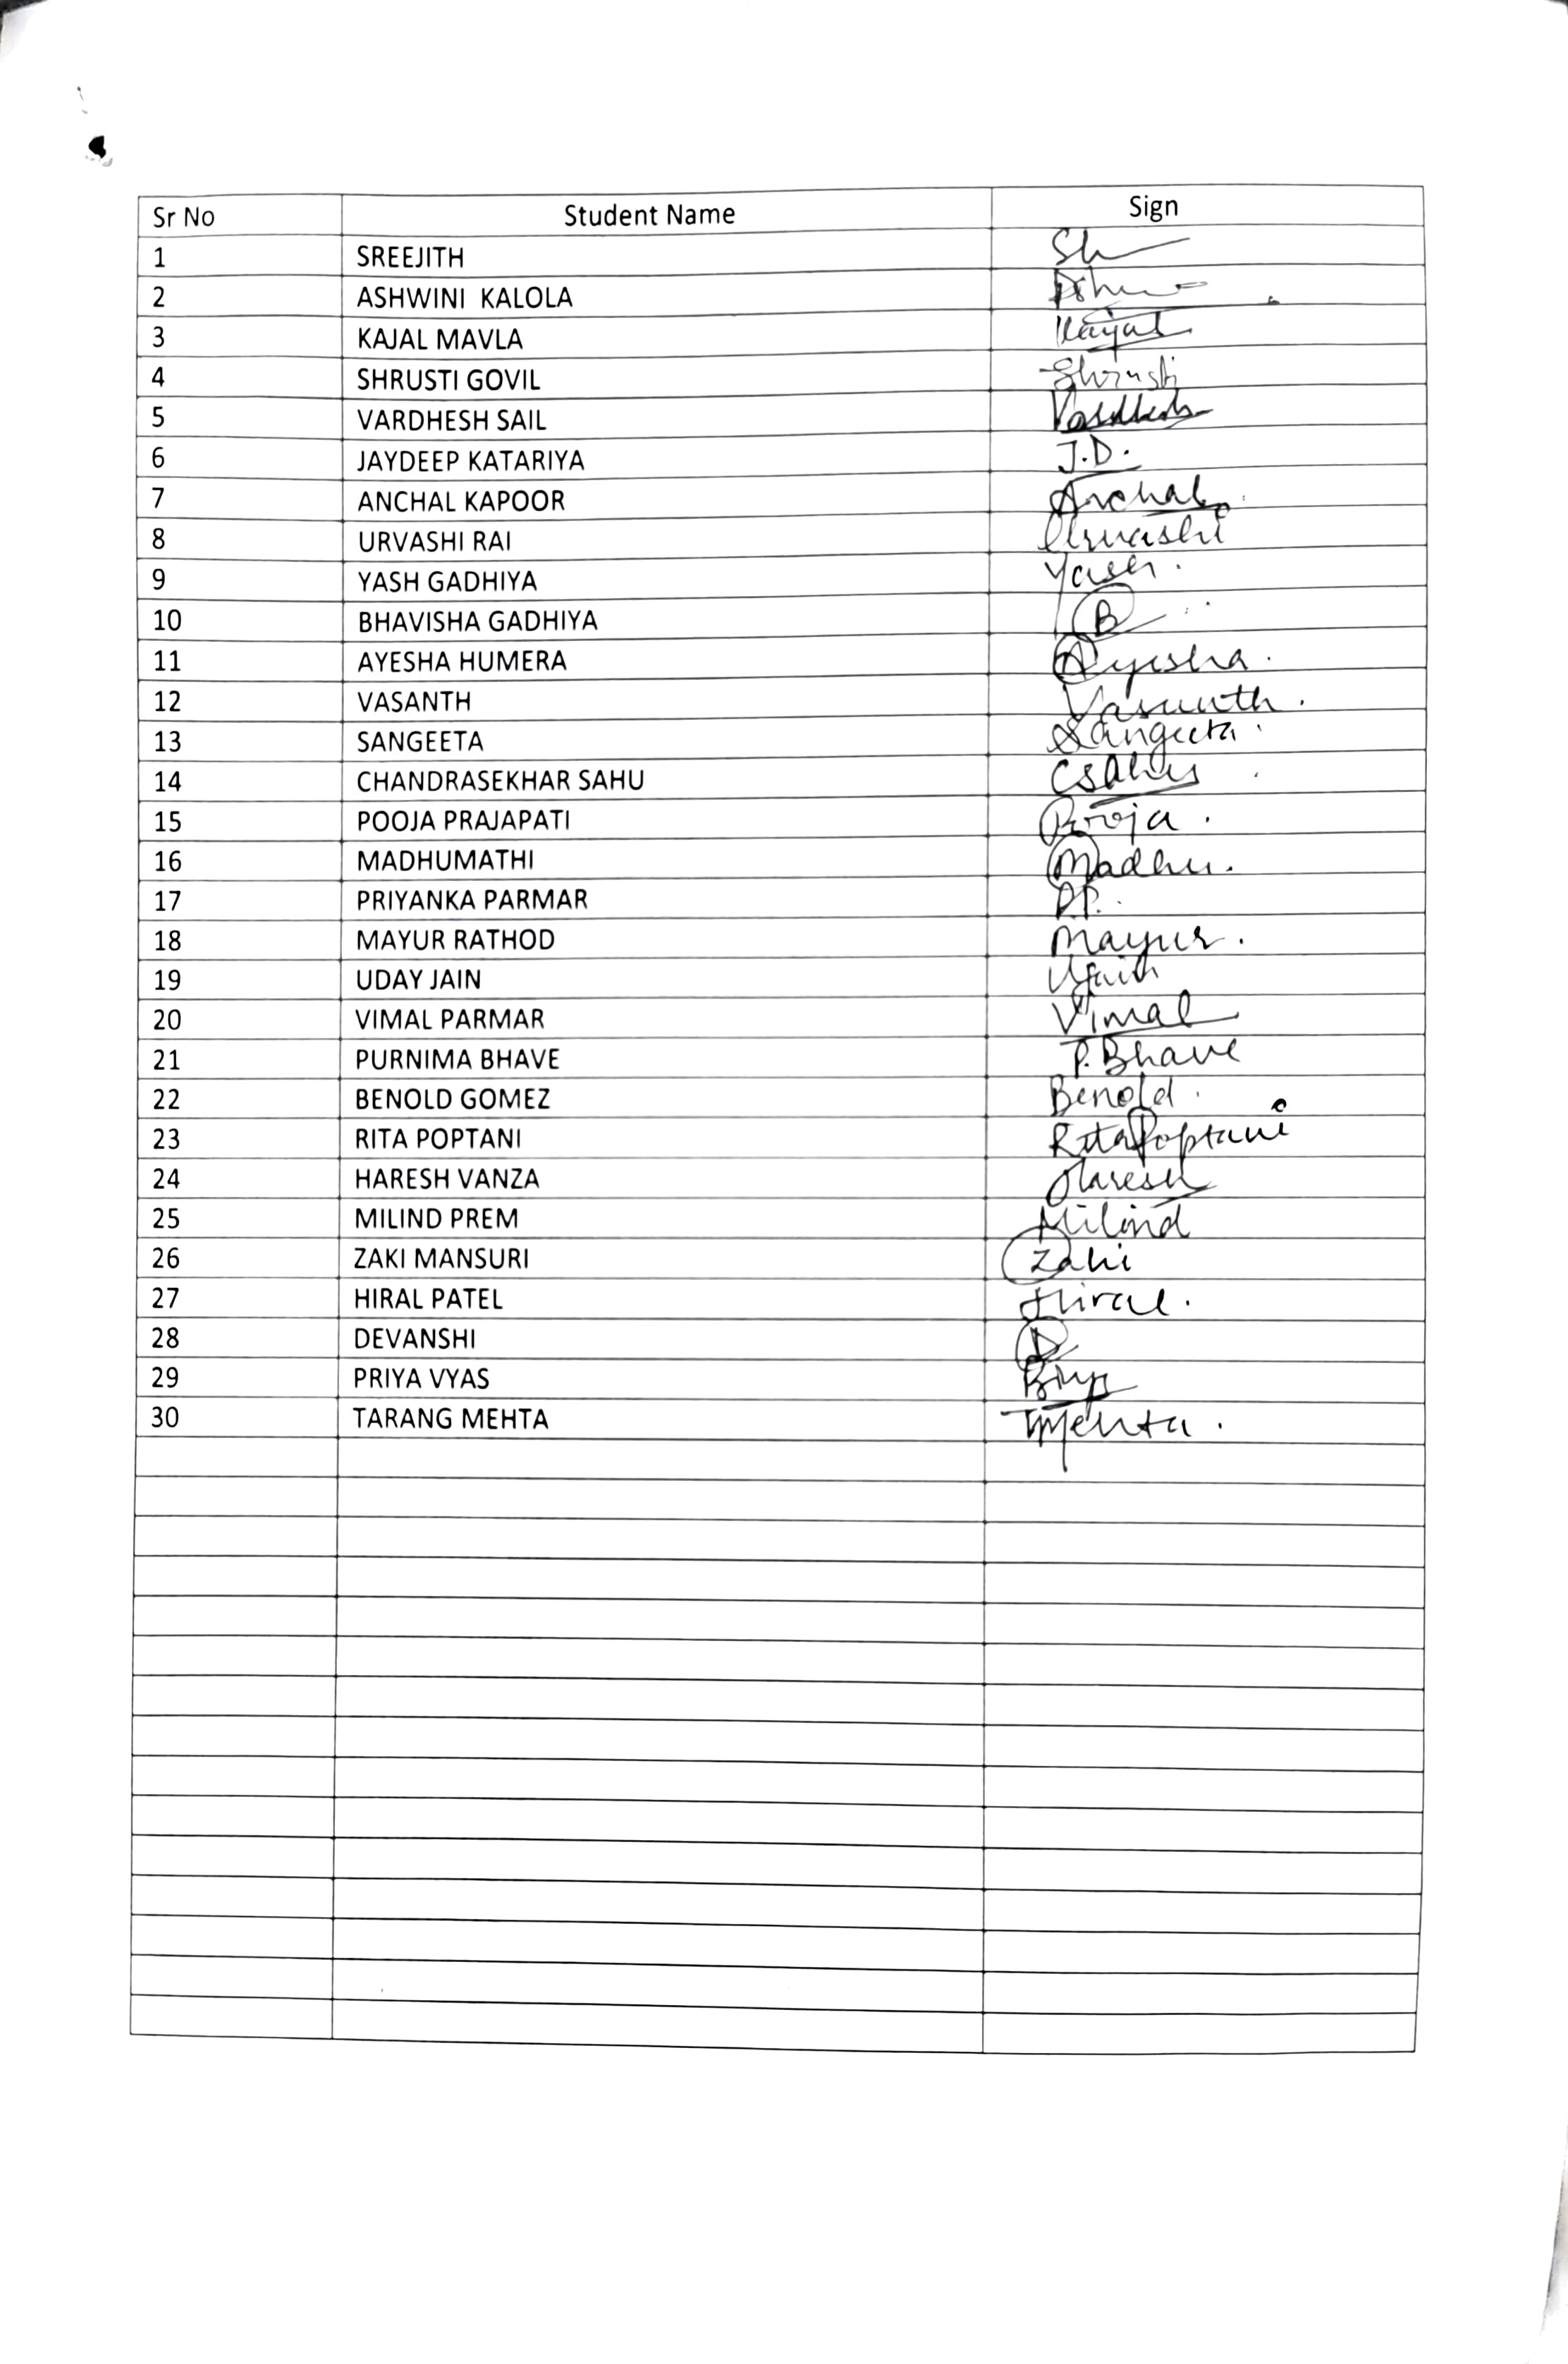 Sr No Student Name Sign
1 SREEJITH Sh
2 ASHWINI KALOLA
3 KAJAL MAVLA Kajal
4 SHRUSTI GOVIL Shrusti
5 VARDHESH SAIL Vardhesh
6 JAYDEEP KATARIYA J.D.
7 ANCHAL KAPOOR Anchal
8 URVASHI RAI Urvashi
9 YASH GADHIYA Yash.
10 BHAVISHA GADHIYA B
11 AYESHA HUMERA Ayesha.
12 VASANTH Vasanth.
13 SANGEETA Sangeeta.
14 CHANDRASEKHAR SAHU CSahu
15 POOJA PRAJAPATI Pooja.
16 MADHUMATHI Madhu.
17 PRIYANKA PARMAR P.P.
18 MAYUR RATHOD Mayur.
19 UDAY JAIN UJain
20 VIMAL PARMAR Vimal
21 PURNIMA BHAVE P.Bhave
22 BENOLD GOMEZ Benold.
23 RITA POPTANI Rita Poptani
24 HARESH VANZA Haresh
25 MILIND PREM Milind
26 ZAKI MANSURI Zaki
27 HIRAL PATEL Hiral.
28 DEVANSHI D
29 PRIYA VYAS
30 TARANG MEHTA TMehta.